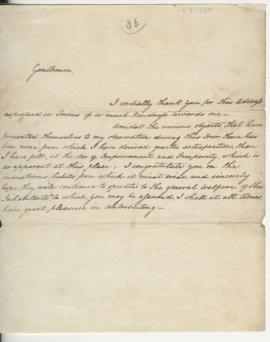 36
Gentlemen,
I cordially thank you for this Address
expressed in Terms of so much Kindness towards me —
Amidst the various objects, that have
presented themselves to my observation during this Tour, there has
been none, from which I have derived greater satisfaction, than
I have felt, at the Air of Improvement and Prosperity, which is
so apparent at this place. I congratulate you on the
industrious habits from which it must arise, and sincerely
hope they will continue to operate to the general welfare of the
Inhabitants, to which you may be assured, I shall at all times
have great pleasure in contributing —